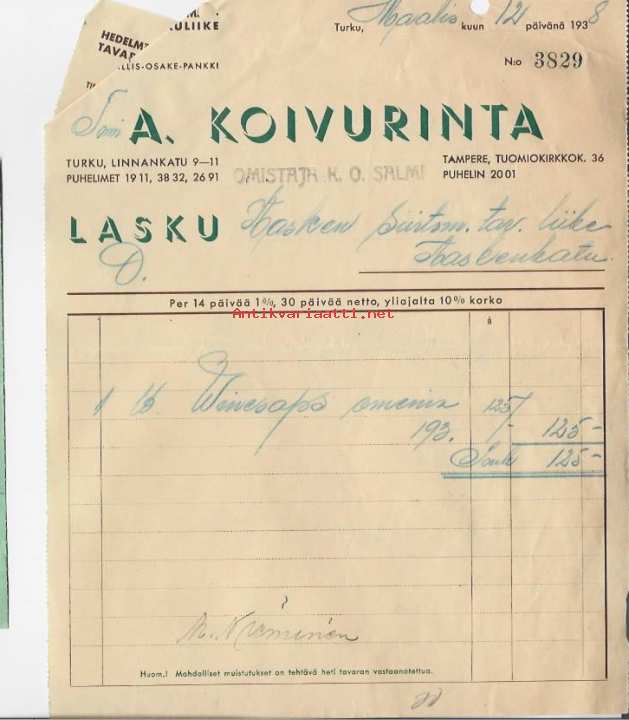 Turku, Maalis kuun 12 päivänä 1938
ULIIKE
HEDELM
TAVAR
LLIS-OSAKE-PANKKI
N:o 3829
A. KOIVURINTA
TURKU, LINNANKATU 9—11
PUHELIMET 19 11, 38 32, 26 91
OMISTAJA K. O. SALMI
TAMPERE, TUOMIOKIRKKOK. 36
PUHELIN 20 01
LASKU Kasken Siirtom. tav. liike
Kaskenkatu.
Per 14 päivää 1%, 30 päivää netto, yliajalta 10% korko
Antikvariaatti.net
á
1 Winesaps omenia 125/
193. /- 125-
125-
N. Nieminen
Huom.! Mahdolliset muistutukset on tehtävä heti tavaran vastaanotettua.